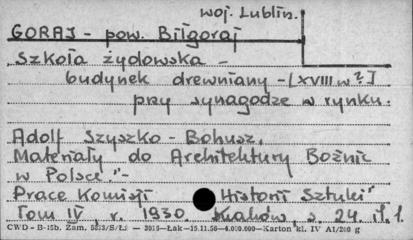 woj. Lublin.
GORAJ - pow. Biłgoraj
Szkoła żydowska -
budynek drewniany - [XVIII w?]
przy synagodze w rynku.
Adolf Szyszko - Bohusz,
Materiały do Architektury Bożnic
w Polsce "-
Prace Komisji Historii Sztuki"
Tom IV, r. 1930. Kraków, s. 24. il. 1.
CWD - B-15b. Zam. 5833/S/Łi — 3016-Łak-15.11.56-4.000.000-Karton kl. IV A1/200 g